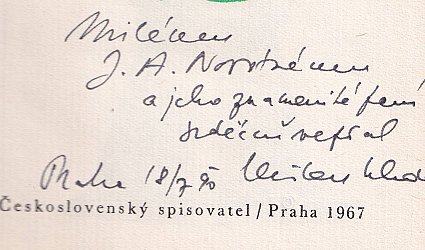 Milému
J. A. Novotnému
a jeho znamenité paní
srdečně vepsal
Praha 18/7 90 Milan
Československý spisovatel / Praha 1967